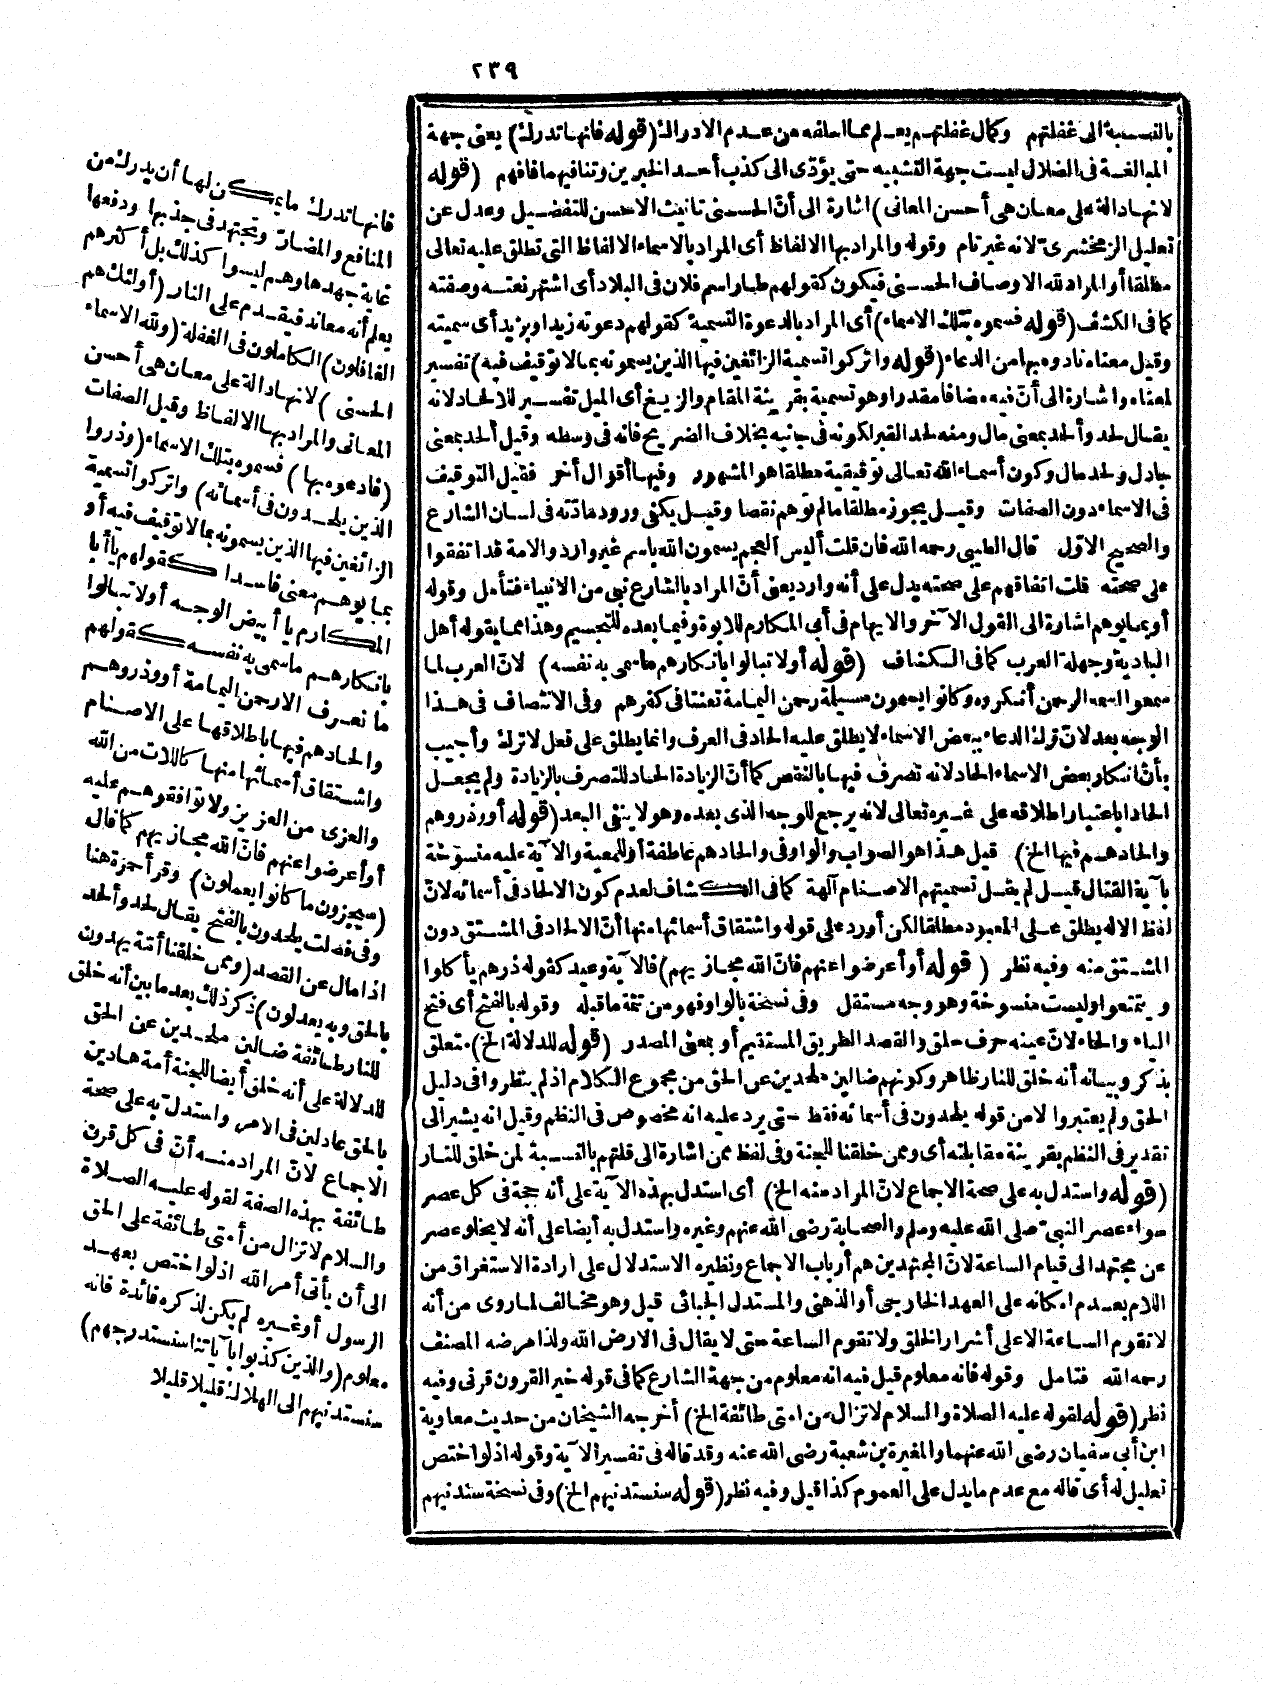 ٢٣٩
بالنسبة الى غفلتهم وكمال غفلتهم يعلم مما اسلفه من عدم الادراك (قوله فانها تدرك) يعنى جهة
المبالغة فى الضلال ليست جهة التشبيه حتى يؤدّى الى كذب أحد الخبرين وتنافيهما فافهم (قوله
لانها دالة على معان هى أحسن المعانى) اشارة الى أنّ الحسنى تانيث الاحسن للتفضيل وعدل عن
تعليل الزمخشرىّ لانه غير تام وقوله والمراد بها الالفاظ أى المراد بالاسماء الالفاظ التى تطلق عليه تعالى
مطلقا أو المراد لله الاوصاف الحسنى فيكون كقولهم طار اسم فلان فى البلاد أى اشتهر نعته وصفته
كما فى الكشف (قوله فسموه بتلك الاسماء) أى المراد بالدعوة التسمية كقولهم دعوته زيدا وبزيد أى سميته
وقيل معناه نادوه بها من الدعاء (قوله واتركوا تسمية الزائغين فيها الذين يسمونه بما لا توقيف فيه) تفسير
لمعناه واشارة الى أنّ فيه مضافا مقدرا وهو تسمية بقرينة المقام والزيغ أى الميل تفسير للالحاد لانه
يقال لحد وألحد بمعنى مال ومنه لحد القبر لكونه فى جانبه بخلاف الضريح فانه فى وسطه وقيل ألحد بمعنى
جادل ولحد مال وكون أسماء الله تعالى توقيفية مطلقا هو المشهور وفيها أقوال أخر فقيل التوقيف
فى الاسماء دون الصفات وقيل يجوز مطلقا ما لم توهم نقصا وقيل يكفى ورود مادّته فى لسان الشارع
والصحيح الاوّل قال الطيبى رحمه الله فان قلت أليس العجم يسمون الله باسم غير وارد والامة قد اتفقوا
على صحته قلت اتفاقهم على صحته يدل على أنه وارد يعنى أنّ المراد بالشارع نبى من الانبياء فتأمل وقوله
أو بما يوهم اشارة الى القول الآخر والايهام فى أبى المكارم للابوة وفيما بعده للتجسيم وهذا مما يقوله أهل
البادية وجهلة العرب كما فى الكشاف (قوله أولا تبالوا بانكارهم ما سمى به نفسه) لانّ العرب لما
سمعوا اسمه الرحمن أنكروه وكانوا يسمون مسيلة رحمن اليمامة تعنتا فى كفرهم وفى الانتصاف فى هذا
الوجه بعد لانّ ترك الدعاء ببعض الاسماء لا يطلق عليه الحاد فى العرف وانما يطلق على فعل لا ترك وأجيب
بأنّ انكار بعض الاسماء الحاد لانه تصرف فيها بالنقص كما أنّ الزيادة الحاد للتصرف بالزيادة ولم يجعل
الحادا باعتبار اطلاقه على غيره تعالى لانه يرجع للوجه الذى بعده وهو لا ينفى البعد (قوله أو وذروهم
والحادهم فيها الخ) قيل هذا هو الصواب والواو فى والحادهم عاطفة أو للمعية والآية عليه منسوخة
بآية القتال قيل لم يقل تسميتهم الاصنام آلهة كما فى الكشاف لعدم كون الالحاد فى أسمائه لانّ
لفظ الاله يطلق على المعبود مطلقا لكن أورد على قوله واشتقاق أسمائها منها أنّ الالحاد فى المشتق دون
المشتق منه وفيه نظر (قوله أو أعرضوا عنهم فانّ الله مجازيهم) فالآية وعيد كقوله ذرهم يأكلوا
ويتمتعوا وليست منسوخة وهو وجه مستقل وفى نسخة بالواو فهو من تتمة ما قبله وقوله بالفتح أى فتح
الياء والحاء لانّ عينه حرف حلق والقصد الطريق المستقيم أو بمعنى المصدر (قوله للدلالة الخ) متعلق
بذكر وبيانه أنه خلق للنار ظاهر وكونهم ضالين ملحدين عن الحق من مجموع الكلام اذ لم ينظروا فى دليل
الحق ولم يعتبروا لا من قوله يلحدون فى أسمائه فقط حتى يرد عليه انه مخصوص فى النظم وقيل انه يشير الى
تقدير فى النظم بقرينة مقابلته أى وممن خلقنا للجنة وفى لفظ ممن اشارة الى قلتهم بالنسبة لمن خلق للنار
(قوله واستدل به على صحة الاجماع لانّ المراد منه الخ) أى استدل بهذه الآية على أنه حجة فى كل عصر
سواء عصر النبىّ صلى الله عليه وسلم والصحابة رضى الله عنهم وغيره واستدل به أيضا على أنه لا يخلو عصر
عن مجتهد الى قيام الساعة لانّ المجتهدين هم أرباب الاجماع ونظيره الاستدلال على ارادة الاستغراق من
اللام بعدم امكانه على العهد الخارجى أو الذهنى والمستدل الجبائى قيل وهو مخالف لما روى من أنه
لا تقوم الساعة الا على أشرار الخلق ولا تقوم الساعة حتى لا يقال فى الارض الله ولذا مرضه المصنف
رحمه الله فتامل وقوله فانه معلوم قيل فيه انه معلوم من جهة الشارع كما فى قوله خير القرون قرنى وفيه
نظر (قوله لقوله عليه الصلاة والسلام لا تزال من امتى طائفة الخ) أخرجه الشيخان من حديث معاوية
ابن أبى سفيان رضى الله عنهما والمغيرة بن شعبة رضى الله عنه وقد قاله فى تفسير الآية وقوله اذ لو اختص
تعليل له أى قاله مع عدم ما يدل على العموم كذا قيل وفيه نظر (قوله سنستدنيهم الخ) وفى نسخة سندنيهم
فانها تدرك ما يمكن لها أن يدرك من
المنافع والمضارّ وتجتهد فى جذبها ودفعها
غاية جهدها وهم ليسوا كذلك بل أكثرهم
يعلم أنه معاند فيقدم على النار (أولئك هم
الغافلون) الكاملون فى الغفلة (ولله الاسماء
الحسنى) لانها دالة على معان هى أحسن
المعانى والمراد بها الالفاظ وقيل الصفات
(فادعوه بها) فسموه بتلك الاسماء (وذروا
الذين يلحدون فى أسمائه) واتركوا تسمية
الزائغين فيها الذين يسمونه بما لا توقيف فيه أو
بما يوهم معنى فاسدا كقولهم يا أبا
المكارم يا أبيض الوجه أولا تبالوا
بانكارهم ما سمى به نفسه كقولهم
ما نعرف الا رحمن اليمامة أو وذروهم
والحادهم فيها باطلاقها على الاصنام
واشتقاق أسمائها منها كاللات من الله
والعزى من العزيز ولا توافقوهم عليه
أو أعرضوا عنهم فانّ الله مجازيهم كما قال
(سيجزون ما كانوا يعملون) وقرأ حمزة هنا
وفى فصلت يلحدون بالفتح يقال لحد وألحد
اذا مال عن القصد (وممن خلقنا أمّة يهدون
بالحق وبه يعدلون) ذكر ذلك بعد ما بين أنه خلق
للنار طائفة ضالين ملحدين عن الحق
للدلالة على أنه خلق أيضا للجنة أمة هادين
بالحق عادلين فى الامر واستدلّ به على صحة
الاجماع لانّ المراد منه أنّ فى كل قرن
طائفة بهذه الصفة لقوله عليه الصلاة
والسلام لا تزال من أمتى طائفة على الحق
الى أن يأتى أمر الله اذ لو اختص بعهد
الرسول أو غيره لم يكن لذكره فائدة فانه
معلوم (والذين كذبوا بآياتنا سنستدرجهم)
سنستدنيهم الى الهلاك قليلا قليلا